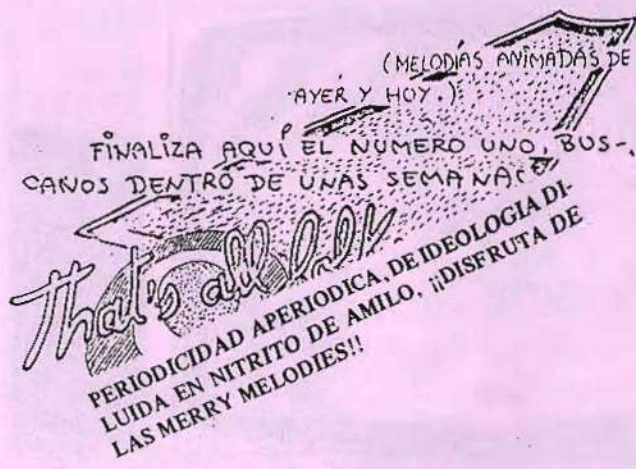 (MELODÍAS ANIMADAS DE
AYER Y HOY.)
FINALIZA AQUÍ EL NUMERO UNO, BUS-
CANOS DENTRO DE UNAS SEMANAS
That's all folks
PERIODICIDAD APERIODICA, DE IDEOLOGIA DI-
LUIDA EN NITRITO DE AMILO, ¡¡DISFRUTA DE
LAS MERRY MELODIES!!